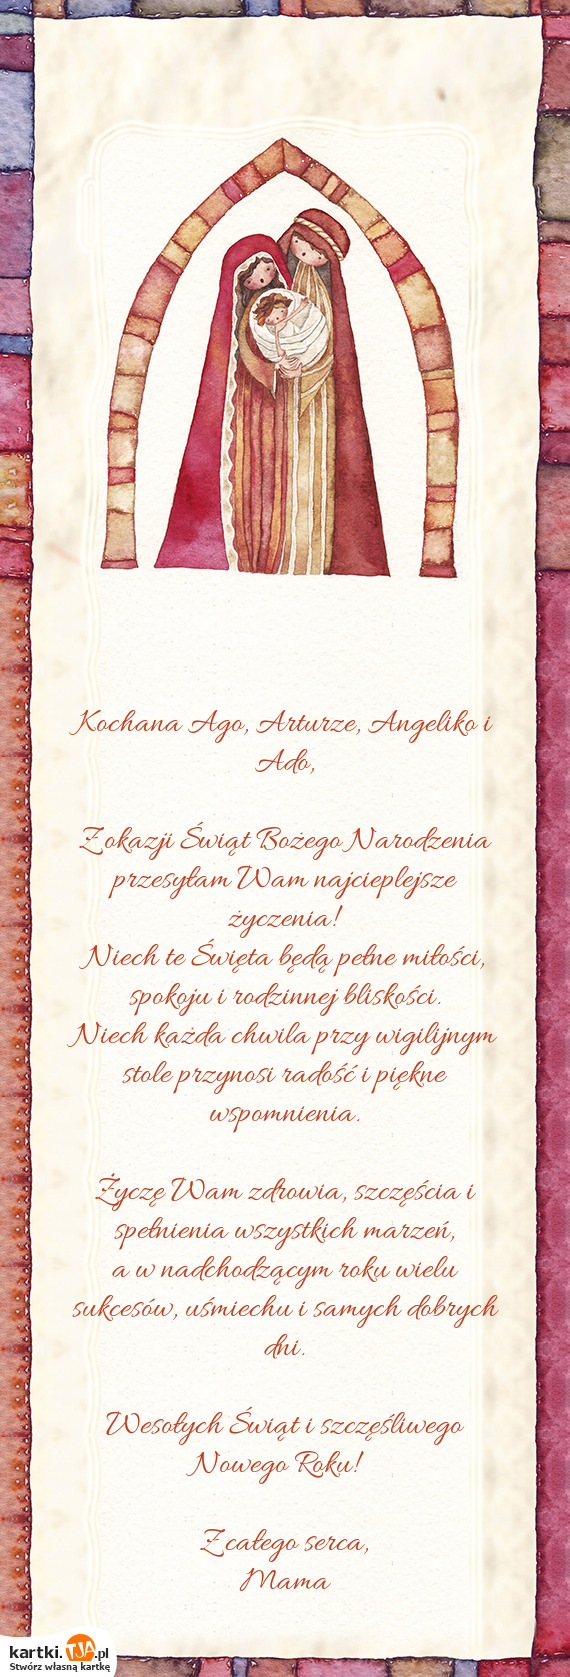 Kochana Ago, Arturze, Angeliko i
Ado,
Z okazji Świąt Bożego Narodzenia
przesyłam Wam najcieplejsze
życzenia!
Niech te Święta będą pełne miłości,
spokoju i rodzinnej bliskości.
Niech każda chwila przy wigilijnym
stole przynosi radość i piękne
wspomnienia.
Życzę Wam zdrowia, szczęścia i
spełnienia wszystkich marzeń,
a w nadchodzącym roku wielu
sukcesów, uśmiechu i samych dobrych
dni.
Wesołych Świąt i szczęśliwego
Nowego Roku!
Z całego serca,
Mama
kartki.TJA.pl
Stwórz własną kartkę